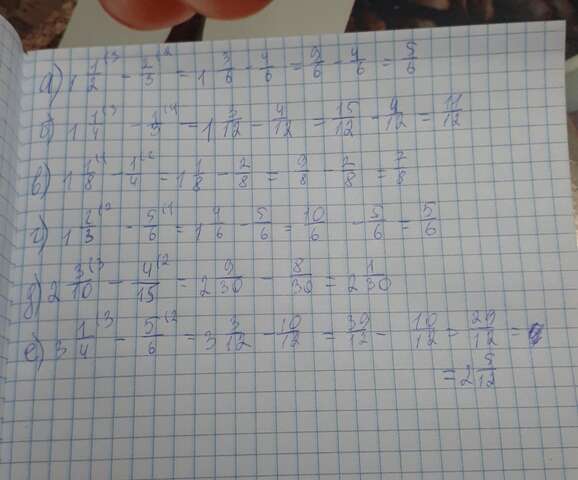 а) 1 1/2 (3 - 2/3 (2 = 1 3/6 - 4/6 = 9/6 - 4/6 = 5/6
б) 1 1/4 (3 - 1/3 (4 = 1 3/12 - 4/12 = 15/12 - 4/12 = 11/12
в) 1 1/8 (1 - 1/4 (2 = 1 1/8 - 2/8 = 9/8 - 2/8 = 7/8
г) 1 2/3 (2 - 5/6 (1 = 1 4/6 - 5/6 = 10/6 - 5/6 = 5/6
д) 2 3/10 (3 - 4/15 (2 = 2 9/30 - 8/30 = 2 1/30
е) 3 1/4 (3 - 5/6 (2 = 3 3/12 - 10/12 = 39/12 - 10/12 = 29/12 =
= 2 5/12